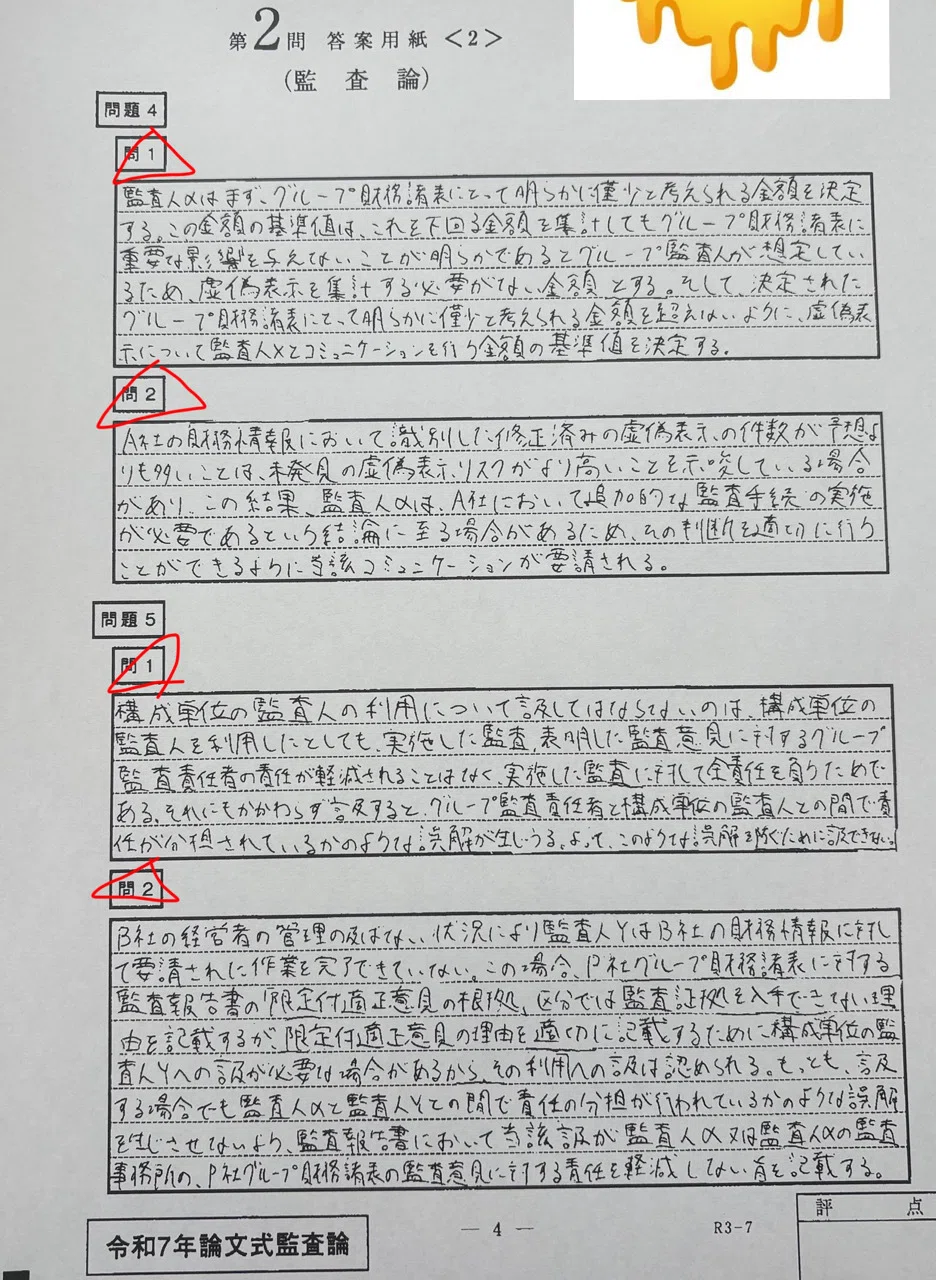 第2問 答案用紙<2>
(監 査 論)
問題4
問1
監査人αはまず、グループ財務諸表にとって明らかに僅少と考えられる金額を決定
する。この金額の基準値は、これを下回る金額を集計してもグループ財務諸表に
重要な影響を与えないことが明らかであるとグループ監査人が想定してい
るため、虚偽表示を集計する必要がない金額とする。そして、決定された
グループ財務諸表にとって明らかに僅少と考えられる金額を超えないように、虚偽表
示について監査人Xとコミュニケーションを行う金額の基準値を決定する。
問2
A社の財務情報において識別した修正済みの虚偽表示の件数が予想よ
りも多いことは、未発見の虚偽表示リスクがより高いことを示唆している場合
があり、この結果、監査人αは、A社において追加的な監査手続の実施
が必要であるという結論に至る場合があるため、その判断を適切に行う
ことができるように当該コミュニケーションが要請される。
問題5
問1
構成単位の監査人の利用について言及してはならないのは、構成単位の
監査人を利用したとしても、実施した監査、表明した監査意見に対するグループ
監査責任者の責任が軽減されることはなく、実施した監査に対して全責任を負うためで
ある。それにもかかわらず言及すると、グループ監査責任者と構成単位の監査人との間で責
任が分担されているかのような誤解が生じうる。よって、このような誤解を防ぐために言及できない。
問2
B社の経営者の管理の及ばない状況により監査人YはB社の財務情報に対し
て要請された作業を完了できていない。この場合、P社グループ財務諸表に対する
監査報告書の「限定付適正意見の根拠」区分では監査証拠を入手できない理
由を記載するが、限定付適正意見の理由を適切に記載するために構成単位の監
査人Yへの言及が必要な場合があるから、その利用への言及は認められる。もっとも、言及
する場合でも監査人αと監査人Yとの間で責任の分担が行われているかのような誤解
を生じさせないよう、監査報告書において当該言及が監査人α又は監査人αの監査
事務所の、P社グループ財務諸表の監査意見に対する責任を軽減しない旨を記載する。
評 点
— 4 —
R3-7
令和7年論文式監査論